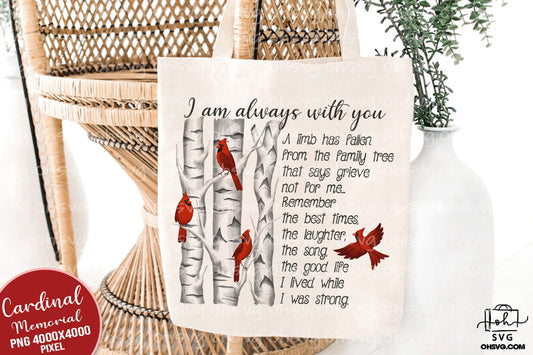 I am always with you
A limb has fallen
from the family tree
that says grieve
not for me...
Remember
the best times,
the laughter,
the song.
the good life
I lived while
I was strong.
Cardinal
Memorial
PNG 4000X4000
PIXEL
Oh!
SVG
OHSVG.COM